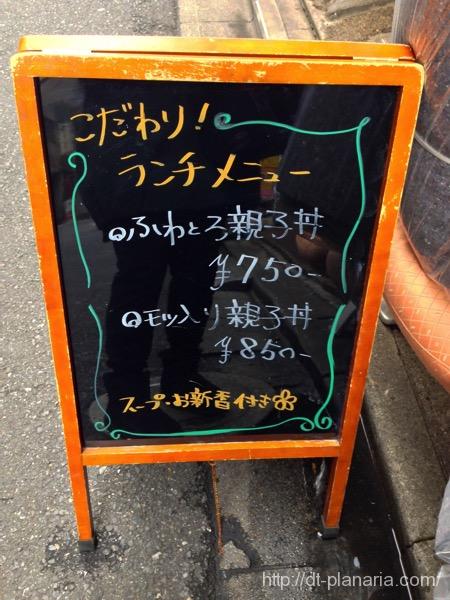 こだわり!
ランチメニュー
ふわとろ親子丼
¥750-
モツ入り親子丼
¥850-
スープ・お新香付き
http://dt-planaria.com/